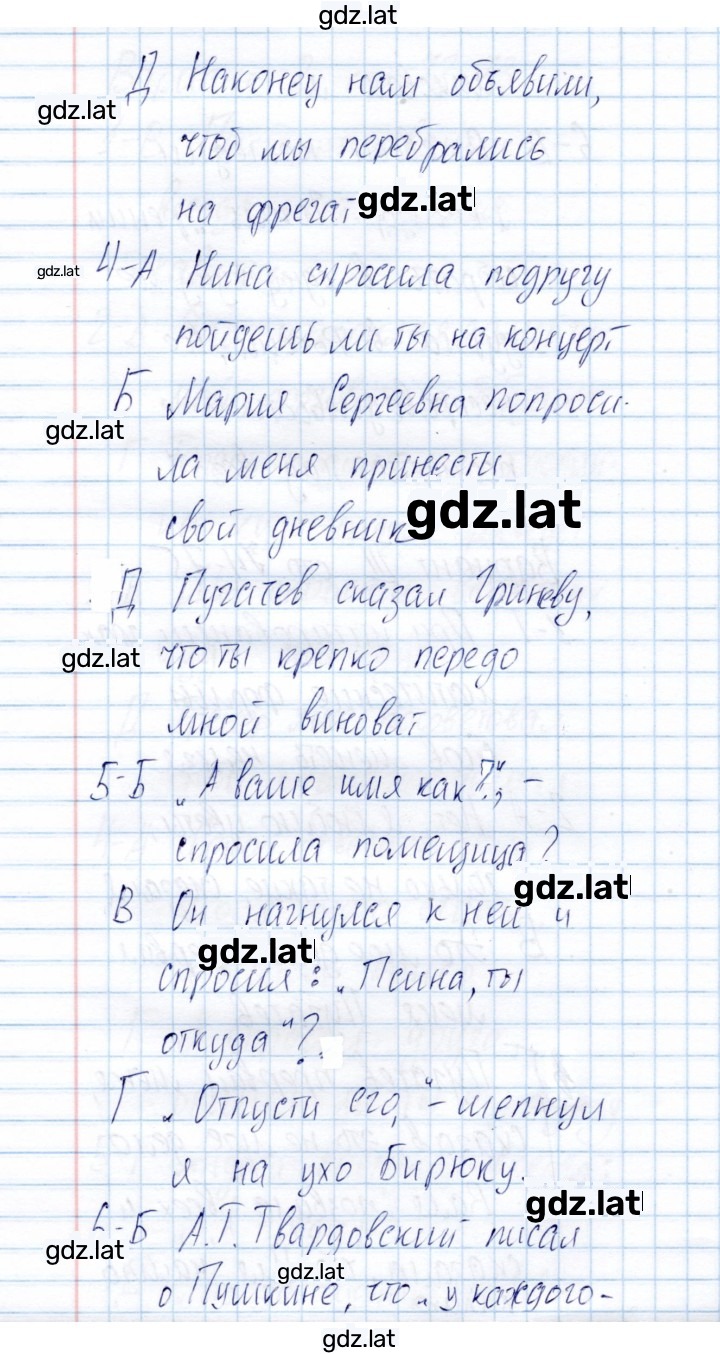 gdz.lat
Д Наконец нам объявили,
gdz.lat
чтоб мы перебрались
на фрегат gdz.lat
gdz.lat 4-А Нина спросила подругу
пойдешь ли ты на концерт
Б Мария Сергеевна попроси-
gdz.lat
ла меня принести
gdz.lat
свой дневник
Д Пугачев сказал Гриневу,
gdz.lat что ты крепко передо
мной виноват
5-Б „А ваше имя как?", -
спросила помещица?
gdz.lat
В Он нагнулся к ней и
gdz.lat
спросил: „Псина, ты
откуда"?
Г „Отпусти его," - шепнул
я на ухо Бирюку.
gdz.lat
6-Б А.Т. Твардовский писал
gdz.lat
gdz.lat
о Пушкине, что „у каждого-
gdz.lat